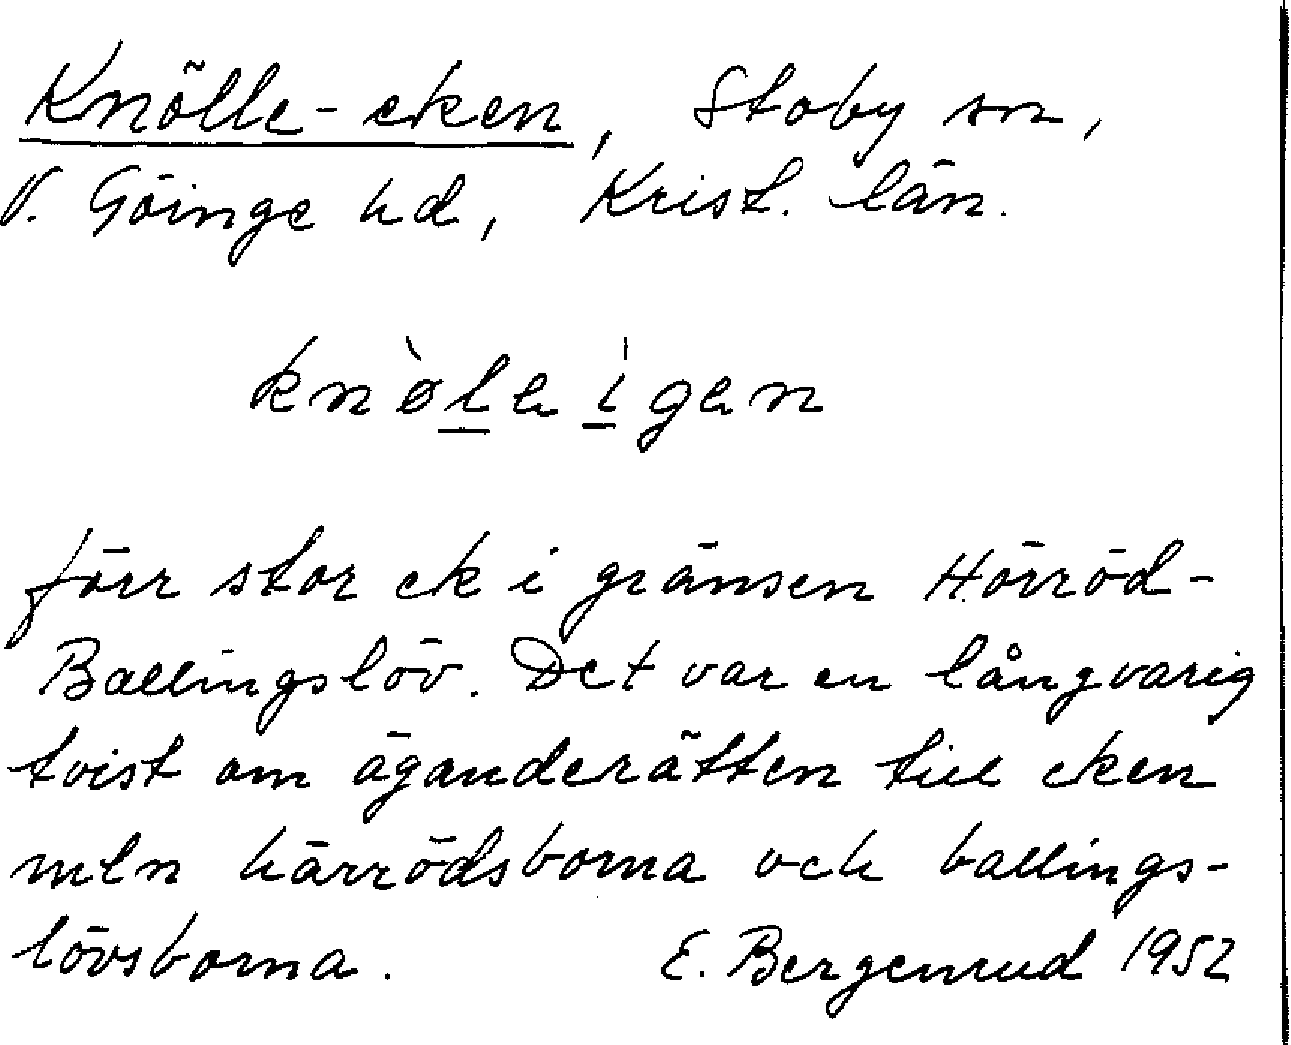 Knölle-eken, Stoby sn,
V. Göinge hd, Krist. län.
knø̀le i̍gen
förr stor ek i gränsen Hörröd-
Ballingslöv. Det var en långvarig
tvist om äganderätten till eken
mln härrödsborna och ballings-
lövsborna. E. Bergenrud 1952